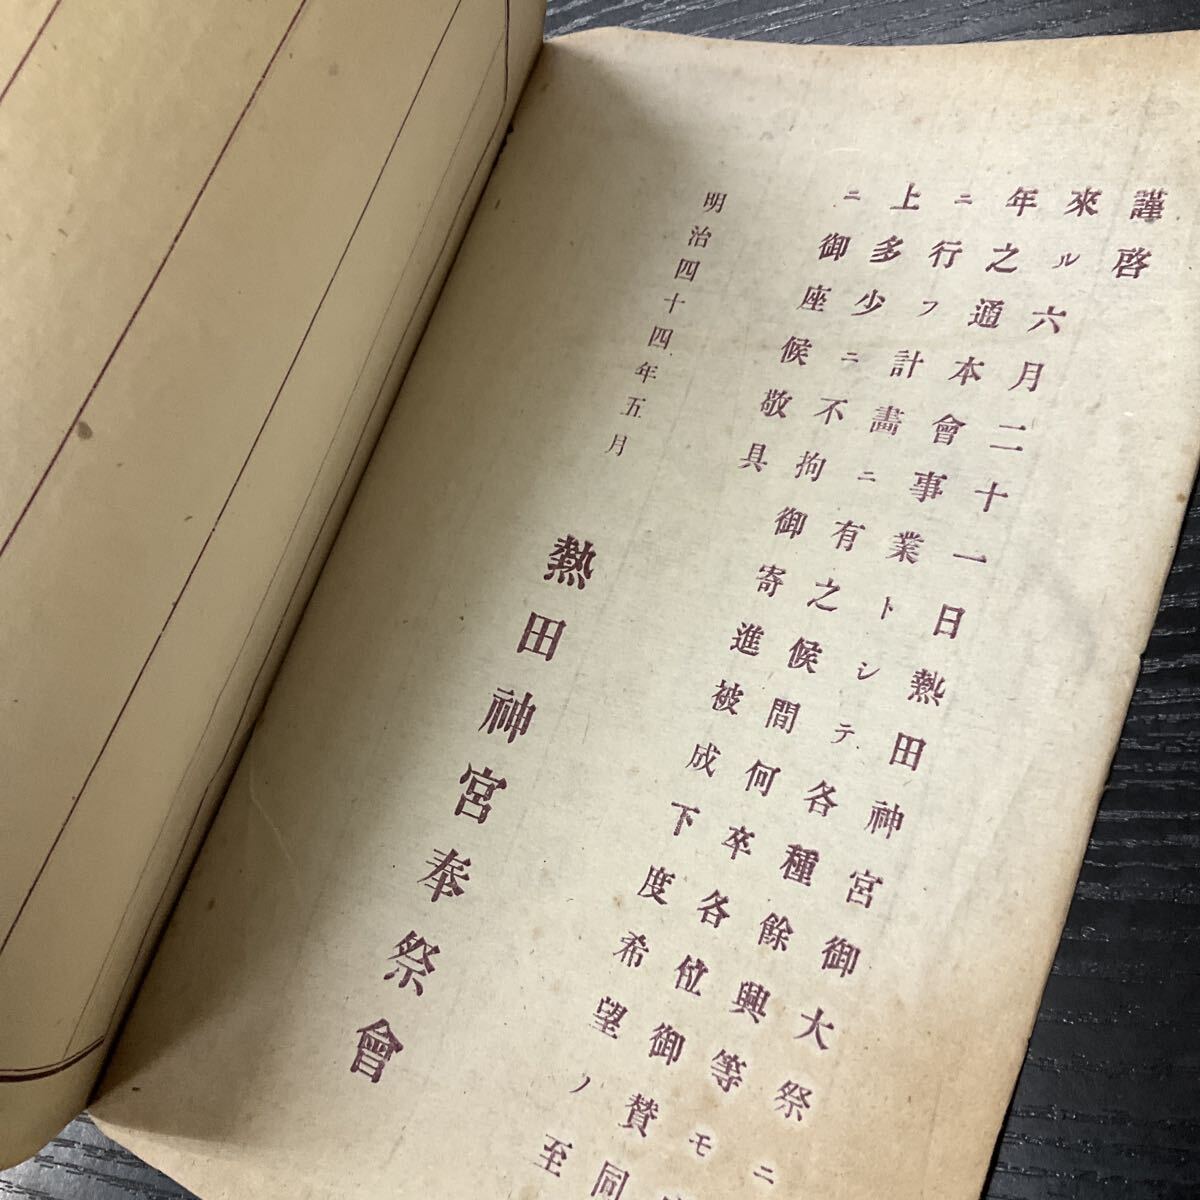 謹啓
來ル六月二十一日熱田神宮御大祭ニ
年之通本會事業トシテ各種餘興等モ
ニ行フ計畫ニ有之候間何卒各位御賛同
上多少ニ不拘御寄進被成下度希望ノ至
ニ御座候敬具
明治四十四年五月
熱田神宮奉祭會